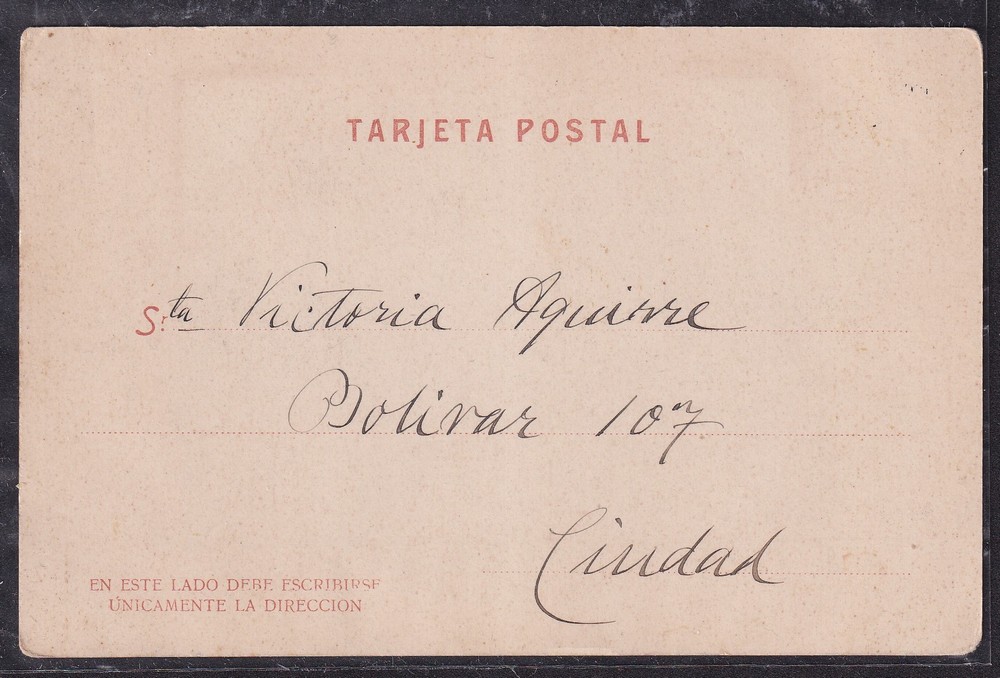 TARJETA POSTAL
Sta Victoria Aguirre
Bolivar 107
Ciudad
EN ESTE LADO DEBE ESCRIBIRSE
ÚNICAMENTE LA DIRECCION